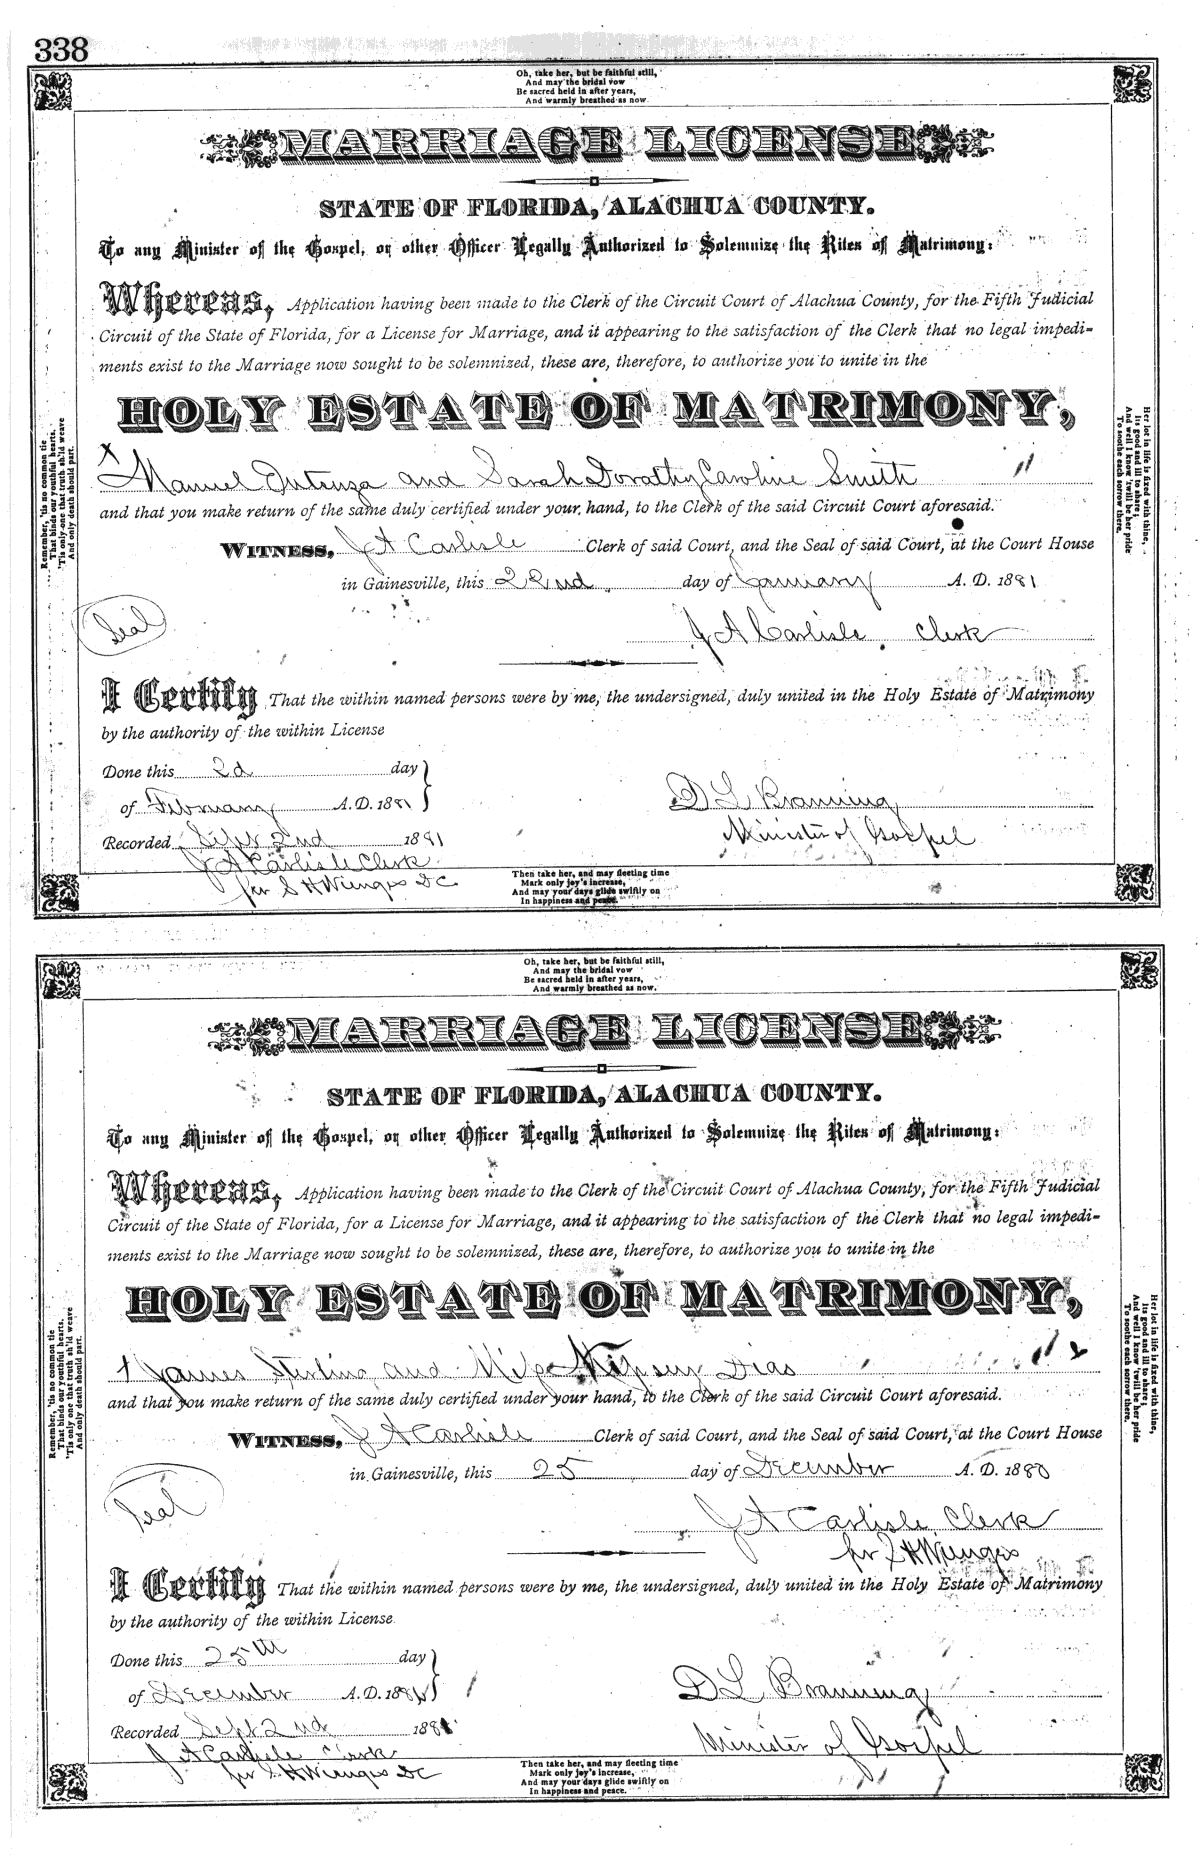 338
Oh, take her, but be faithful still,
And may the bridal vow
Be sacred held in after years,
And warmly breathed as now.
MARRIAGE LICENSE
STATE OF FLORIDA, ALACHUA COUNTY.
To any Minister of the Gospel, or other Officer Legally Authorized to Solemnize the Rites of Matrimony:
Whereas, Application having been made to the Clerk of the Circuit Court of Alachua County, for the Fifth Judicial
Circuit of the State of Florida, for a License for Marriage, and it appearing to the satisfaction of the Clerk that no legal impedi-
ments exist to the Marriage now sought to be solemnized, these are, therefore, to authorize you to unite in the
HOLY ESTATE OF MATRIMONY,
Remember, 'tis no common tie
That binds our youthful hearts,
'Tis only one that truth sh'ld weave
And only death should part.
Her lot in life is fixed with thine,
Its good and ill to share;
And well I know 'twill be her pride
To soothe each sorrow there.
x Manuel and Sarah Dorathy Caroline Smith "
and that you make return of the same duly certified under your hand, to the Clerk of the said Circuit Court aforesaid.
WITNESS, J A Carlisle Clerk of said Court, and the Seal of said Court, at the Court House
in Gainesville, this 22nd day of January A. D. 1881
Seal
J A Carlisle Clerk
I Certify That the within named persons were by me, the undersigned, duly united in the Holy Estate of Matrimony
by the authority of the within License
Done this 2d day
of February A. D. 1881
D L Branning
Minister of Gospel
Recorded Sept 2nd 1881
J A Carlisle Clerk
per S H Wienges DC
Then take her, and may fleeting time
Mark only joy's increase,
And may your days glide swiftly on
In happiness and peace.
Oh, take her, but be faithful still,
And may the bridal vow
Be sacred held in after years,
And warmly breathed as now.
MARRIAGE LICENSE
STATE OF FLORIDA, ALACHUA COUNTY.
To any Minister of the Gospel, or other Officer Legally Authorized to Solemnize the Rites of Matrimony:
Whereas, Application having been made to the Clerk of the Circuit Court of Alachua County, for the Fifth Judicial
Circuit of the State of Florida, for a License for Marriage, and it appearing to the satisfaction of the Clerk that no legal impedi-
ments exist to the Marriage now sought to be solemnized, these are, therefore, to authorize you to unite in the
HOLY ESTATE OF MATRIMONY,
Remember, 'tis no common tie
That binds our youthful hearts,
'Tis only one that truth sh'ld weave
And only death should part.
Her lot in life is fixed with thine,
Its good and ill to share;
And well I know 'twill be her pride
To soothe each sorrow there.
x James Sterling and Dias
and that you make return of the same duly certified under your hand, to the Clerk of the said Circuit Court aforesaid.
WITNESS, J A Carlisle Clerk of said Court, and the Seal of said Court, at the Court House
in Gainesville, this 25 day of December A. D. 1880
Seal
J A Carlisle Clerk
per S H Wienges
I Certify That the within named persons were by me, the undersigned, duly united in the Holy Estate of Matrimony
by the authority of the within License
Done this 25th day
of December A. D. 188
D L Branning
Minister of Gospel
Recorded Sept 2nd 1881
J A Carlisle Clerk
per S H Wienges DC
Then take her, and may fleeting time
Mark only joy's increase,
And may your days glide swiftly on
In happiness and peace.